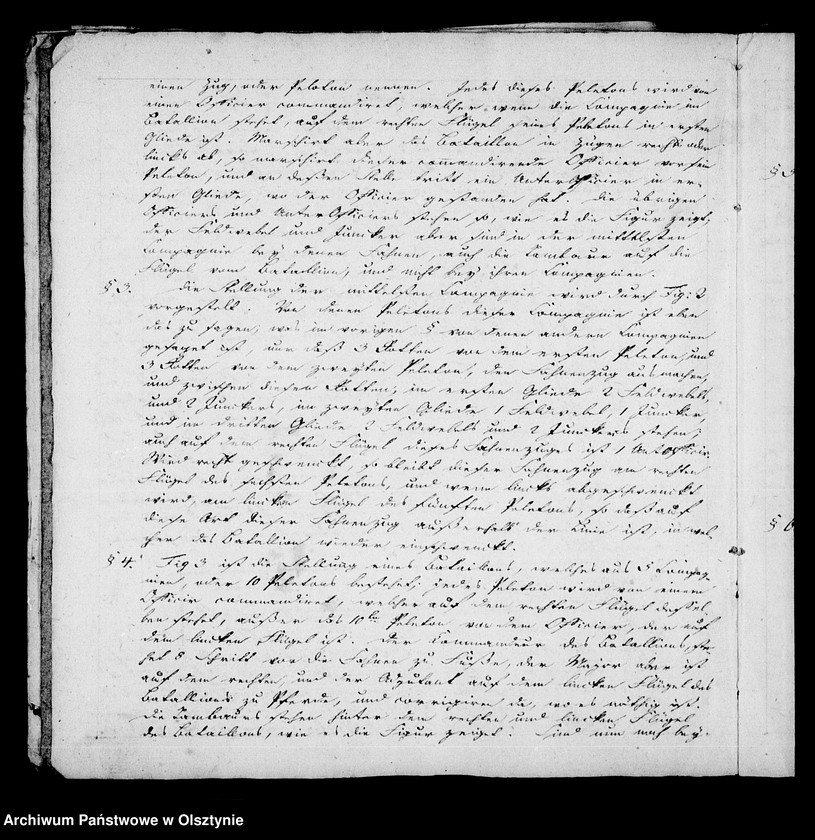 einen Zug, oder Peloton nennen. Jedes dieses Peletons wird von
einen Officier commandiret, welcher wenn die Compagnie im
Batallion stehet, auf dem rechten Flügel seines Peletons im ersten
Gliede ist. Marschirt aber das Bataillon in Zügen rechts oder
lincks ab, so marschirt dieser commandirende Officier vor sein
Peleton, und an deßen Stelle tritt ein UnterOfficier in er-
sten Gliede, wo der Officier gestanden hat. Die übrigen
Officiers und UnterOfficiers stehen so, wie es die Figur zeigt,
der Feldwebel und Juncker aber sind in der mittelsten
Compagnie bey denen Fahnen, auch die Tambour auf die
Flügel vom Batallion, und nicht bey ihren Compagnien.
§ 3. Die Stellung der mittelsten Compagnie wird durch Fig: 2
vorgestelt. Von denen Peletons dieser Compagnie ist eben
das zu sagen, was im vorigen § von denen andern Compagnien
gesaget ist, nur daß 3 Rotten von dem ersten Peleton, und
3 Rotten von dem zweyten Peleton, den Fahnenzug ausmachen,
und zwischen diesen Rotten, im ersten Gliede 2 Feldwebels
und 2 Junckers, im zweyten Gliede 1 Feldwebel, 1 Juncker,
und im dritten Gliede 2 Feldwebels und 2 Junckers stehen;
auch auf dem rechten Flügel dieses Fahnenzuges ist 1 Unt Officir.
Wird recht geschwenckt, so bleibt dieser Fahnenzug am rechten
Flügel des sechsten Peletons, und wenn lincks abgeschwenckt
wird, am lincken Flügel des fünften Peletons, so daß auf
diese Art dieser Fahnenzug außerhalb der Linie ist, in wel-
cher das Batallion wieder einschwenckt.
§ 4. Fig 3 ist die Stellung eines Batallions, welches aus 5 Compag-
nien, oder 10 Peletons bestehet; jedes Peleton wird von einem
Officir commandiret, welcher auf dem rechten Flügel deßsel-
ben stehet, außer das 10te Peleton von dem Officier, der auf
dem lincken Flügel ist. Der Commandeur des Batallions, ste-
het 8 Schritt vor die Fahnen zu Fuße, der Major aber ist
auf dem rechten, und der Adjutant auf dem lincken Flügel des
Batallions zu Pferde, und corrigiren da, wo es nöthig ist.
Die Tambours stehen hinter dem rechten und lincken Flügel
des Bataillons, wie es die Figur zeiget. Sind nun noch bey-
§ 6
Archiwum Państwowe w Olsztynie